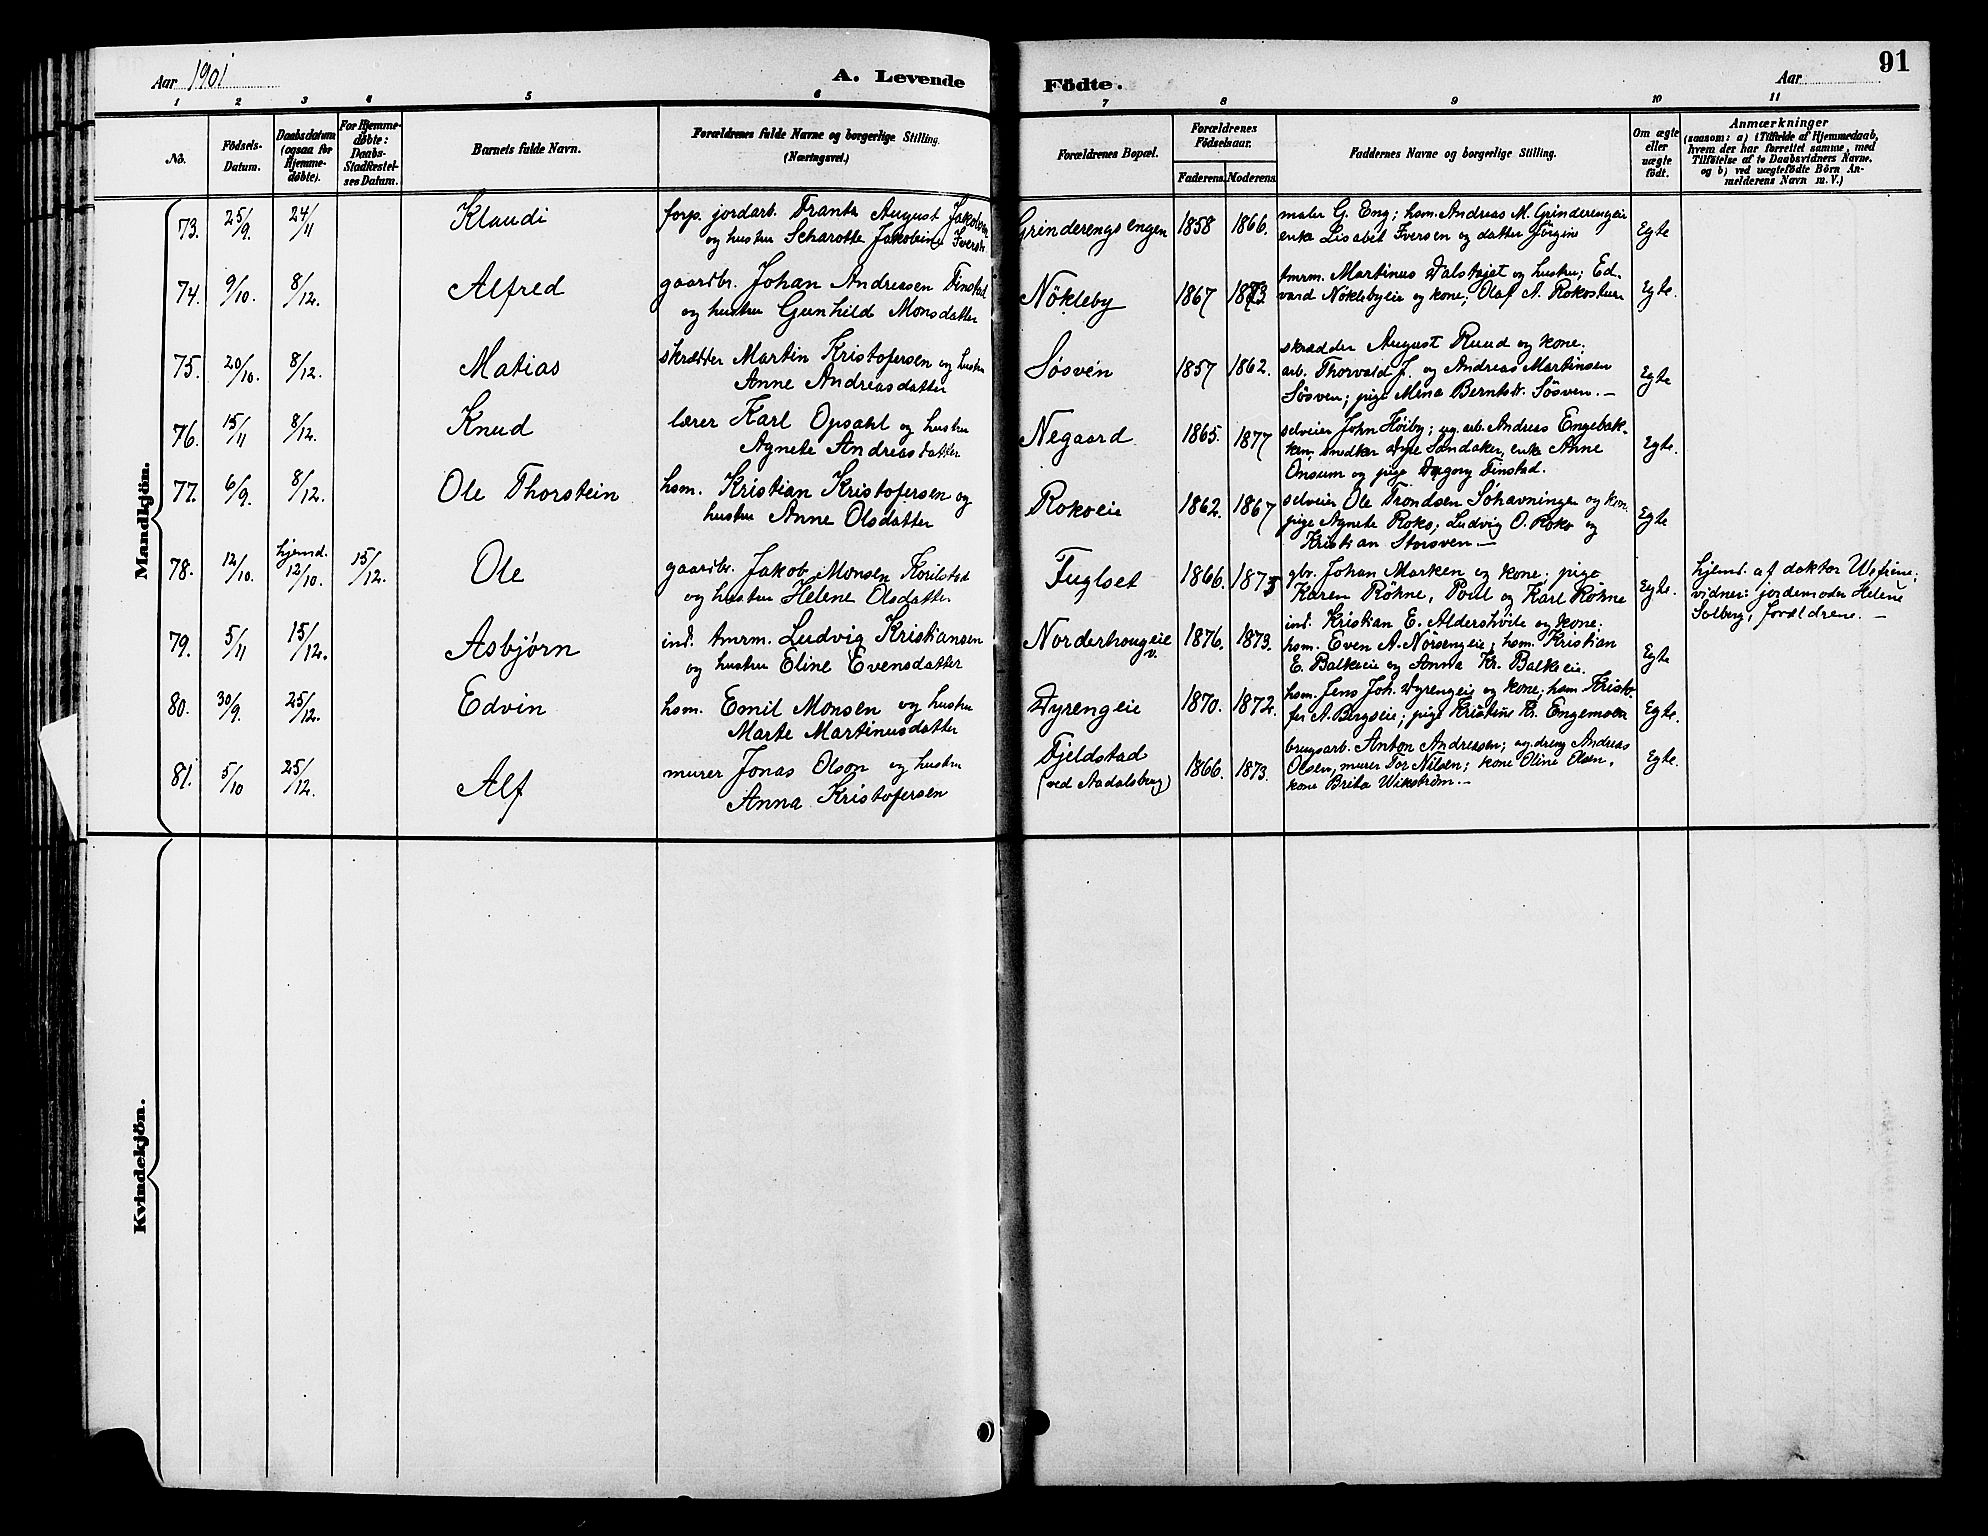 Aar 1901
A. Levende
Födte.
Aar
91
1 2 3 4 5 6 7 8 9 10 11
No.
Födsels-
Datum.
Daabsdatum
(ogsaa for
Hjemme-
døbte).
For Hjemme-
døbte:
Daabs-
Stadfæstel-
ses Datum.
Barnets fulde Navn.
Forældrenes fulde Navne og borgerlige Stilling.
(Næringsvei.)
Forældrenes Bopæl.
Forældrenes
Födselsaar.
Faderens. Moderens.
Faddernes Navne og borgerlige Stilling.
Om ægte
eller
uægte
født.
Anmærkninger
(saasom: a) i Tilfælde af Hjemmedaab,
hvem der har forrettet samme, med
Tilföielse af to Daabsvidners Navne,
og b) ved uægtefödte Börn An-
melderens Navn m. V.)
Mandkjön.
73. 25/9. 24/11 Klaudi
forp. jordarb. Frants August Jakobsen
og hustru Scharotte Jakobine Iversdr
Grinderengs engen 1858 1866.
maler G. Eng; hsm. Andreas M. Grinderengeie
enke Lisabet Iversen og datter Jörgine
Egte
74. 9/10. 8/12. Alfred
gaardbr. Johan Andreasen Finstad
og hustru Gunhild Monsdatter
Nökleby 1867 1873
tmrm. Martinus Dalstøjet og hustru; Ed-
vard Nöklebyeie og kone; Olaf A. Rokostuen
Egte.
75. 20/10. 8/12. Matias
skrædder Martin Kristofersen og hustru
Anne Andreasdatter
Søsven 1857 1862.
skrædder August Ruud og kone;
arb. Thorvald J. og Andreas Martinsen
Søsven; pige Mina Berntsdr. Søsven. —
Egte
76. 15/11 8/12. Knud
lærer Karl Opsahl og hustru
Agnete Andreasdatter
Negaard 1865. 1877
selveier John Høiby; ug. arb. Andreas Engebak-
ken, snedker Dyre Sandaker, enke Anne
Onsum og pige Dagorg Finstad.
Egte.
77. 6/9. 8/12. Ole Thorstein
hsm. Kristian Kristofersen og
hustru Anne Olsdatter
Rokoeie 1862. 1867
selveier Ole Trondsen Søhavningen og kone
pige Agnete Roko; Ludvig O. Roko og
Kristian Storsven —
Egte
78. 12/10. hjemd. 12/10. 15/12. Ole
gaardbr. Jakob Monsen
og hustru Helene Olsdatter
Fuglset 1866. 1875
gbr. Johan Marken og kone; pige
Karen Röhne, Poul og Karl Röhne
Egte.
hjemd. af doktor
vidner: jordemoder Helene
Solberg, forældrene. —
79. 5/11 15/12. Asbjørn
ind. tmrm. Ludvig Kristiansen
og hustru Eline Evensdatter
Norderhougeie v. 1876. 1873.
ind. Kristian E. Aldershvile og kone;
hsm. Even A. Nörsengeie; hsm. Kristian
E. Balkeie og Anna Kr. Balkeie.
Egte
80. 30/9. 25/12. Edvin
hsm. Emil Monsen og hustru
Marte Martinusdatter
Dyrengeie 1870. 1872.
hsm. Jens Joh. Dyrengeie og kone; hsm Kristo-
fer A. Bergseie; pige Kristine Kr. Engemoen
Egte.
81. 5/10 25/12. Alf
murer Jonas Olson og hustru
Anna Kristofersen
Fjeldstad
(ved Aadalsbrug) 1866. 1873.
brugsarb. Anton Andreasen; ug. dreng Andreas
Olsen, murer Tor Nilsen; kone Oline Olsen,
kone Brita Wikström. —
Egte.
Kvindekjön.